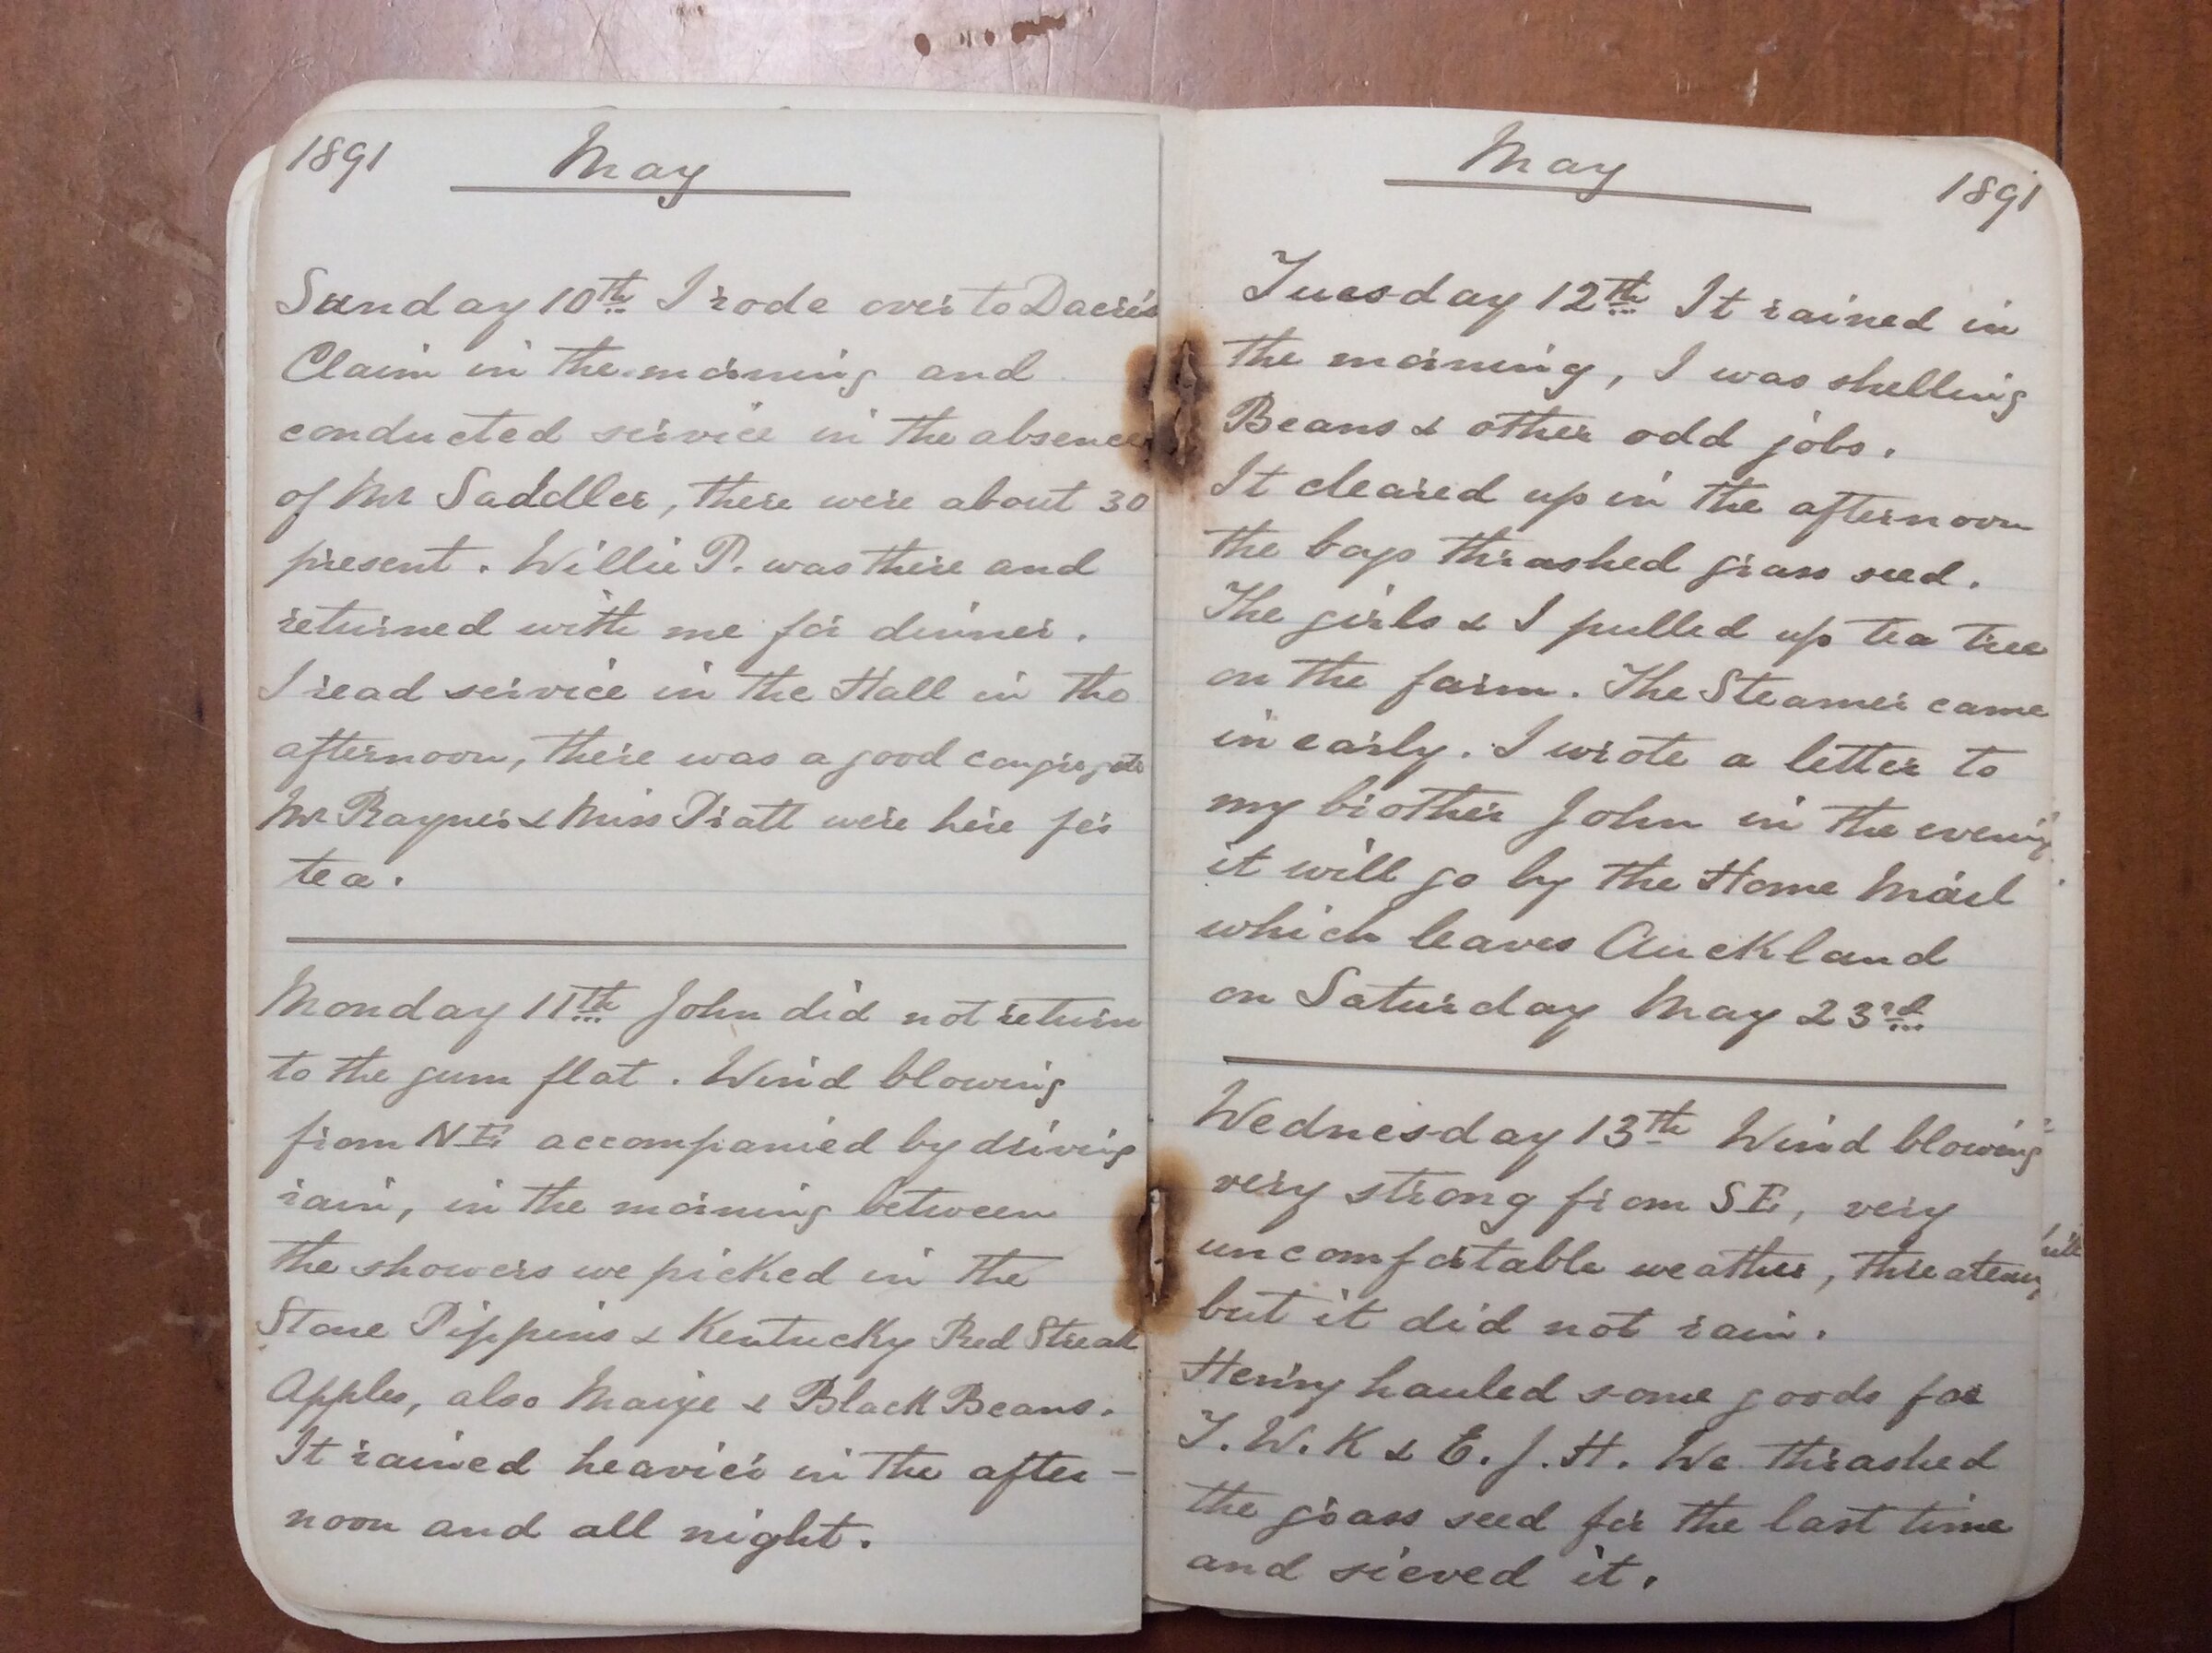 1891 May
Sunday 10th I rode over to Dacre's
Claim in the morning and
conducted service in the absence
of Mr Saddler, there were about 30
present. Willie P. was there and
returned with me for dinner.
I read service in the Hall in the
afternoon, there was a good
Mr Rayner & Miss Pratt were here for
tea.
Monday 11th John did not return
to the gum flat. Wind blowing
from NE accompanied by driving
rain, in the morning between
the showers we picked in the
Stone Pippins & Kentucky Red Streak
Apples, also Maize & Black Beans.
It rained heavier in the after-
noon and all night.
May 1891
Tuesday 12th It rained in
the morning, I was shelling
Beans & other odd jobs.
It cleared up in the afternoon
the boys thrashed grass seed.
The girls & I pulled up tea tree
on the farm. The Steamer came
in early. I wrote a letter to
my brother John in the evening
it will go by the Home Mail
which leaves Auckland
on Saturday May 23rd
Wednesday 13th Wind blowing
very strong from SE, very
uncomfortable weather, threatening
but it did not rain.
Henry hauled some goods for
T.W.K & E.J.H. We thrashed
the grass seed for the last time
and sieved it.